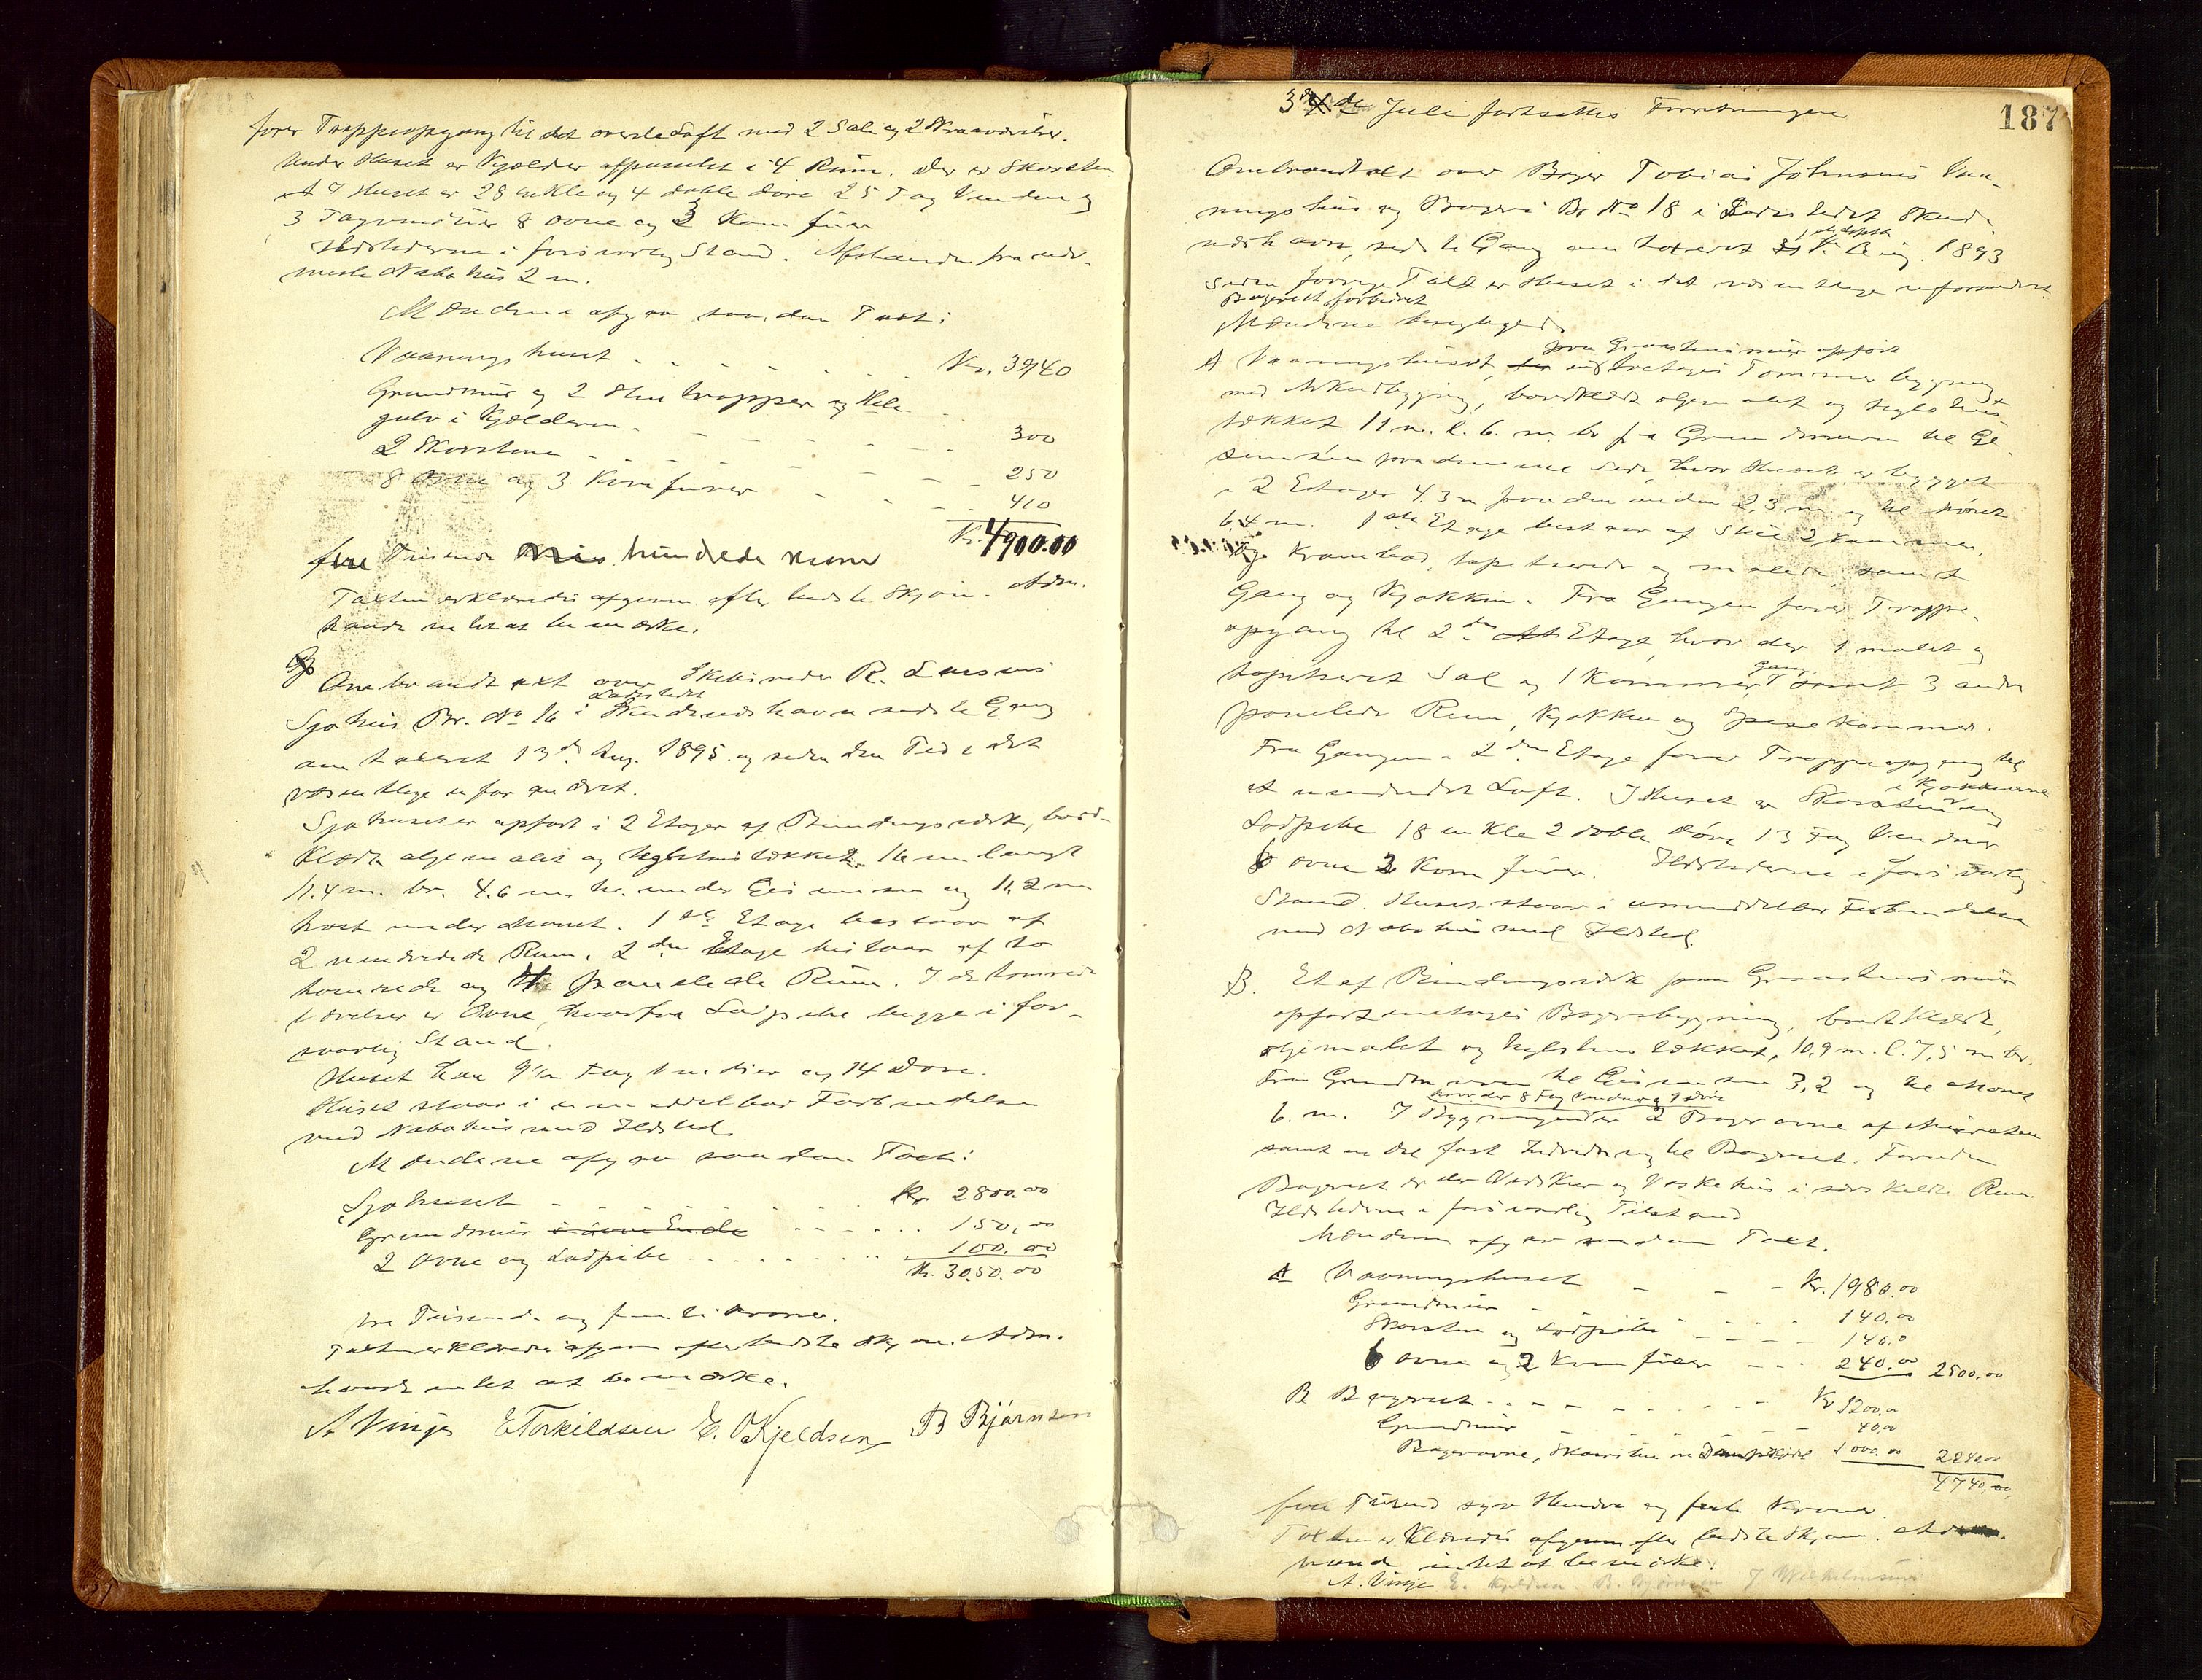 fører Trappeopgang til det øverste Loft med 2 Sale og 2 Kvaværelser.
Under Huset er Kjælder afpanelet i 4 Rum. Der er Skorsten
I Huset er 28 enkle og 4 doble Døre 25 Fag Vinduer og
3 Tagvinduer 8 Ovne og 3 Komfurer
Ildstederne i forsvarlig Stand. Afstanden fra nær-
meste Nabohus 2 m.
Mændene afgav saadan Taxt:
Vaaningshuset Kr. 3940
Grundmur og 2 Stentrapper og Hele-
gulv i Kjælderen 300
2 Skorstene 250
8 Ovne og 3 Komfurer 410
Kr. 4900.00
fire Tusinde ni hundrede Kroner
Taxten erklæredes afgiven efter bedste Skjøn. Adm.
havde intet at bemærke.
Ombrandtaxt over Skibsreder R. Larsens
Sjøhus Br. No 16 i Ladestedet Skudeneshavn sidste Gang
omtaxeret 13de Aug. 1895 og siden den Tid i det
væsentlige uforandret.
Sjøhuset er opført i 2 Etager af Bindingsværk, bord-
klædt oljemalet og teglstenstækket. 16 m langt
11.4 m. br. 4.6 m. hø. under Gesimsen og 11,2 m
høit under Mønet. 1ste Etage bestaar af
2 uindredede Rum. 2den Etage bestaar af to
tømrede og panelede Rum. I de tømrede
Værelser er Ovne, hvorfra Lodpibe begge i for-
svarlig Stand.
Huset har 9½ Fag Vinduer og 14 Døre.
Huset staar i umiddelbar Forbindelse
med Nabohus med Ildsted.
Mændene afgav saadan Taxt:
Sjøhuset Kr. 2800.00
Grundmur i øvre Ende 150,00
2 Ovne og Lodpibe 100.00
Kr. 3050.00
tre Tusinde og femti Kroner.
Taxten erklæredes afgiven efter bedste Skjøn. Adm.
havde intet at bemærke.
A Vinje E Torkildsen E. O Kjeldsen B Bjørnsen
187
3de Juli fortsattes Forretningen
Ombrandtaxt over Bager Tobias Johnsens Vaa-
ningshus og Bageri Br No 18 i Ladestedet Skude-
neshavn, sidste Gang omtaxeret 1893
siden forrige Taxt er Huset i det væsentlige uforandret.
Bageriet forbedret
Mændene besigtigede
paa Graastensmur opført
A Vaaningshuset, en toetages Tømmerbygning
med Arkudbygging, bordklædt oljemalet og teglstens
tækket 11 m. l. 6. m. br fra Grundmuren til Ge-
simsen paa den ene Side, hvor Huset er bygget
i 2 Etager 4.3 m paa den anden 2,3 m og til Mønet
6,4 m. 1ste Etage bestaar af Stue 2 Kammer,
Krambod, tapetserede og malede, samt
Gang og Kjøkken. Fra Gangen fører Trappe-
opgang til 2den Etage, hvor der 1 malet og
tapetseret Sal og 1 Kammer, Gang samt 3 andre
panelede Rum, Kjøkken og Spisekammer.
Fra Gangen i 2den Etage fører Trappeopgang til
et uindredet Loft. I Huset er Skorsten i Kjøkkenene og
Lodpibe 18 enkle 2 doble Døre 13 Fag Vinduer
6 Ovne 2 Komfurer. Ildstederne i forsvarlig
Stand. Huset staar i umiddelbar Forbindelse
med Nabohus med Ildsted.
B. Et af Bindingsværk paa Graastensmur
opført enetages Bageribygning, bordklædt,
oljemalet og teglstenstækket, 10,9 m. l. 7,5 m br.
Fra Grundmuren til Gesimsen 3,2 og til Mønet
hvor der 8 Fag Vinduer og 9 Døre
6. m. I Bygningen er 2 Bagerovne af Mursten
samt en Del fast Indredning til Bageriet. Foruden
Bageriet er der Vedskur og Vaskehus i særskilte Rum
Ildstederne i forsvarlig Tilstand
Mændene afgav saadan Taxt.
A Vaaningshuset Kr. 1980.00
Grundmur 140.00
Skorsten og Lodpibe 140.0
6 Ovne og 2 Komfurer 240.00 2500,00
B Bageriet Kr 1200,0
Grundmur 40,00
Bagerovne, Skorsten og Dampkjedel 1000.00 2240,00
4740,00
fire Tusind syv Hundre og førti Kroner.
Taxten erklæredes afgiven efter bedste Skjøn. Adm.
havde intet at bemærke.
A. Vinje E. Kjeldsen B. Bjørnsen J Wilhelmsen